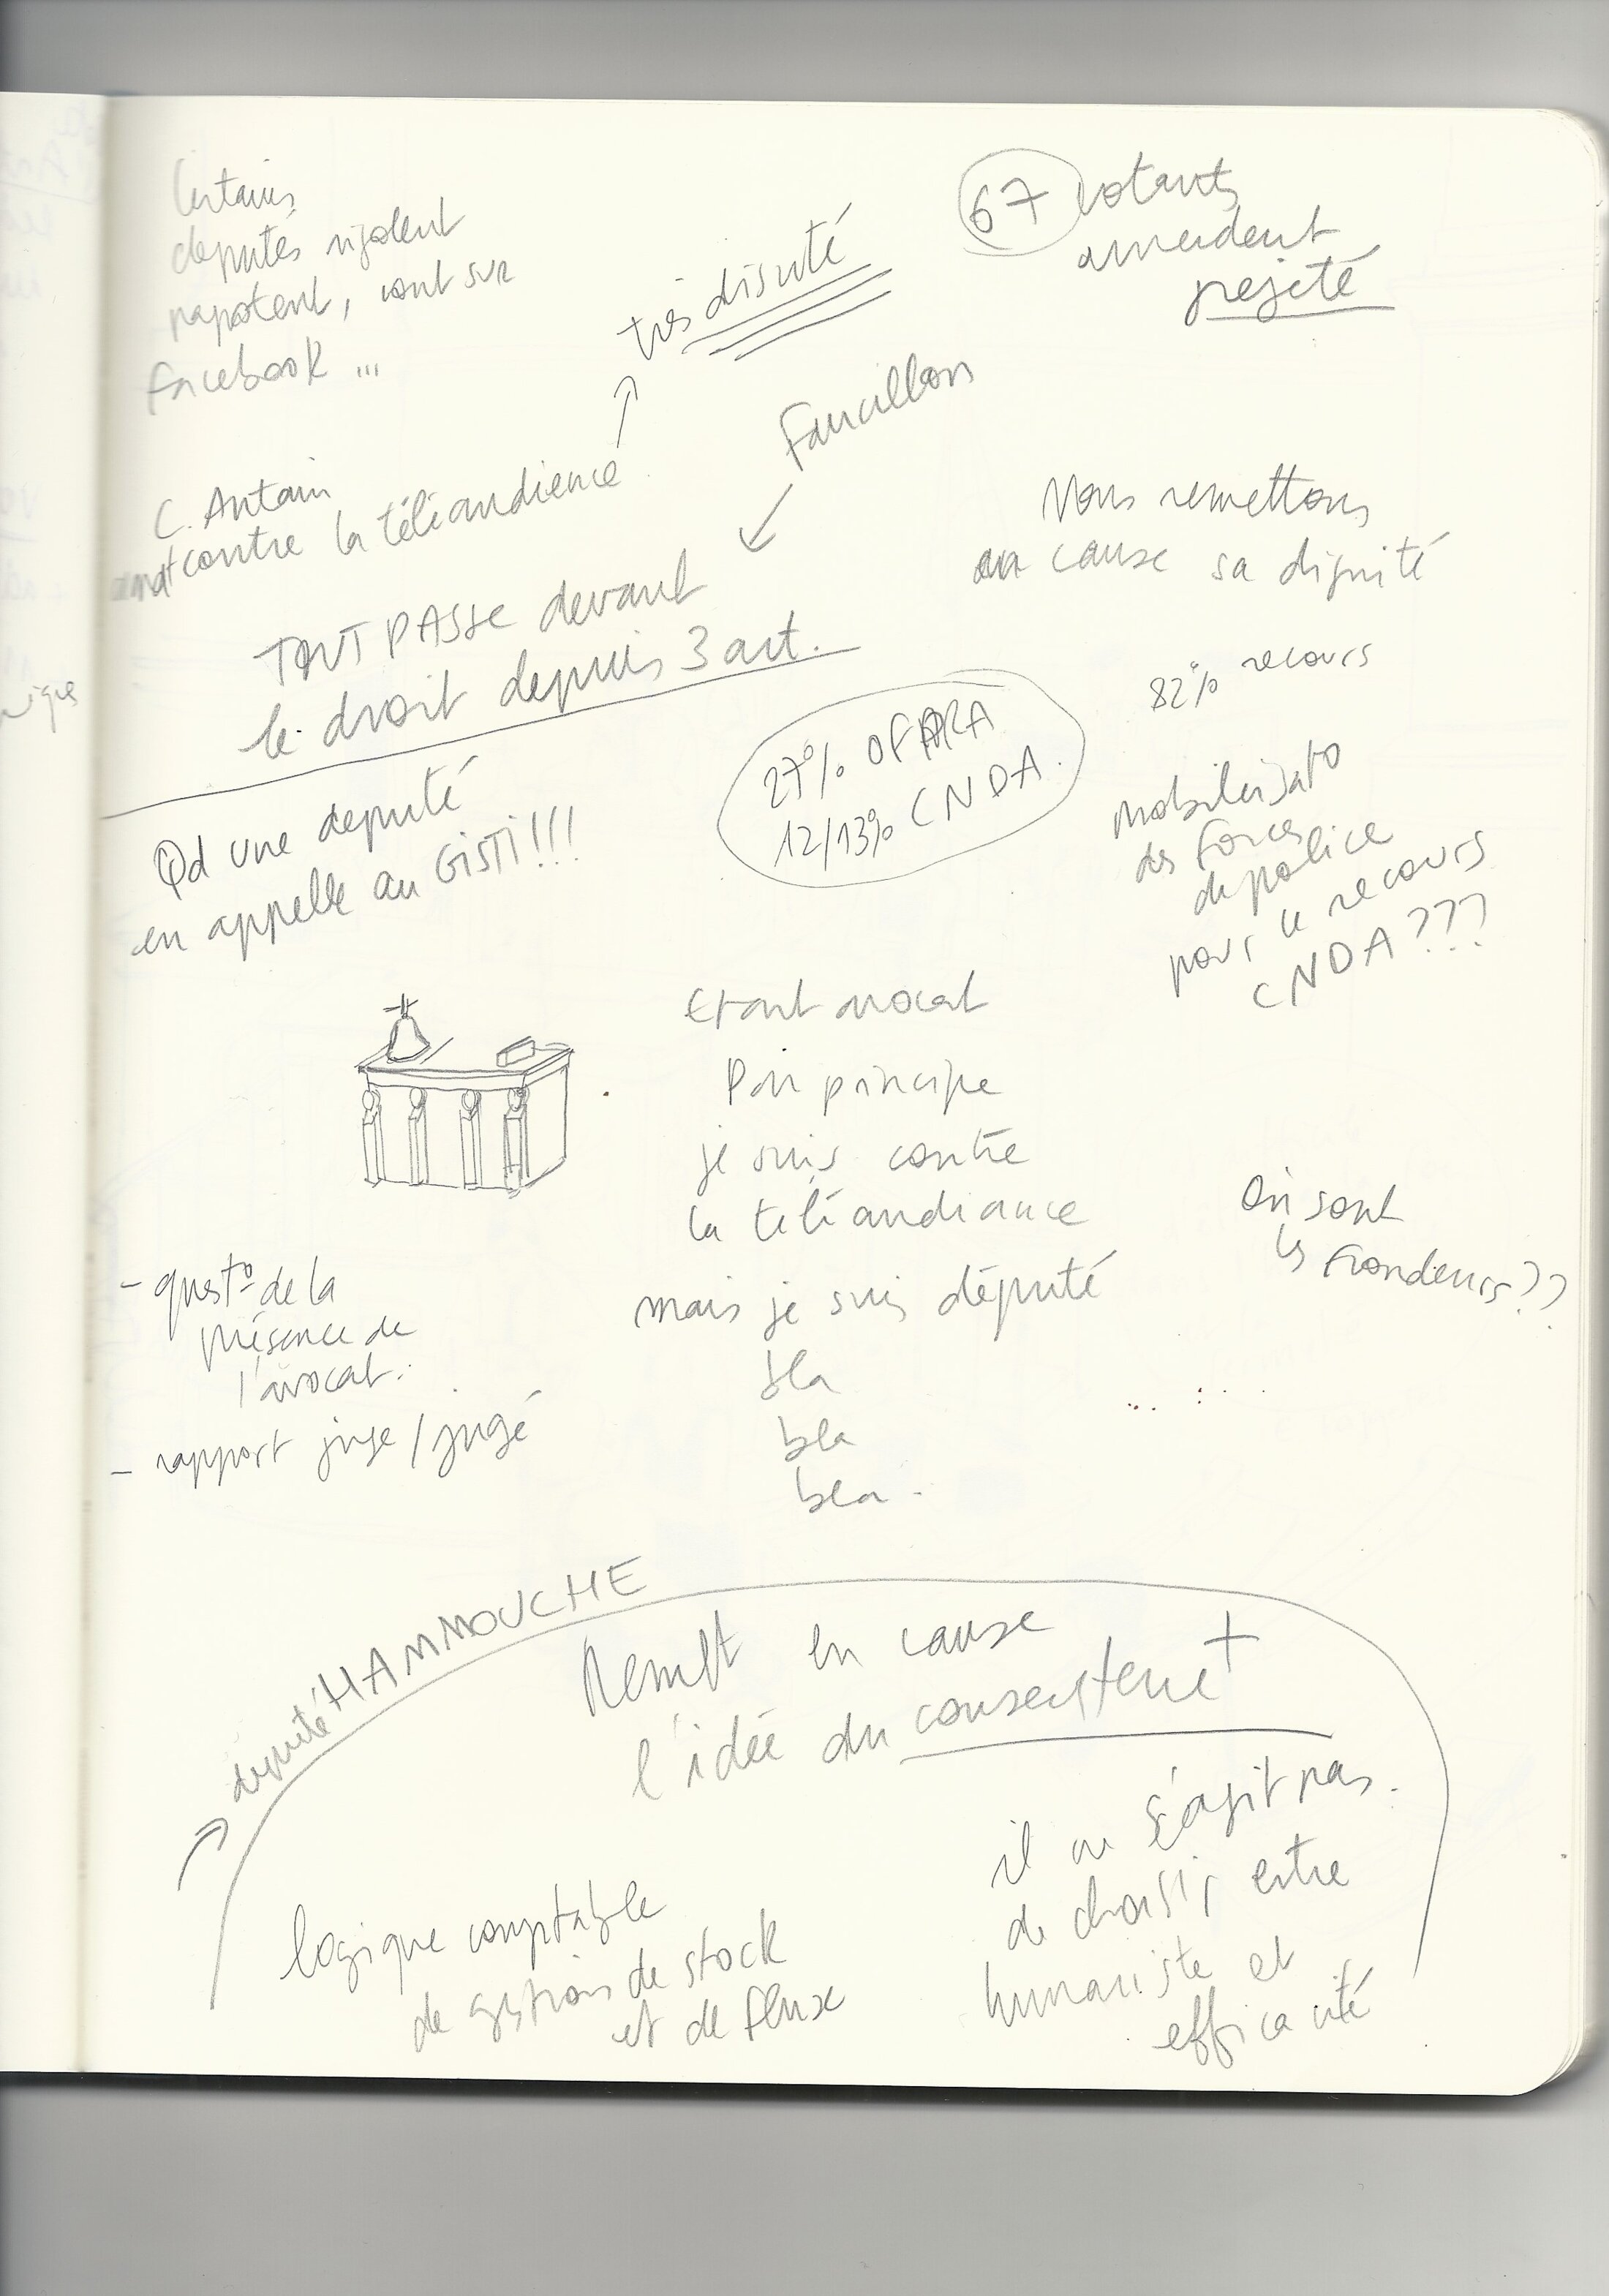 Certains
députés rigolent
papotent, vont sur
facebook ...
67 votants
amendent
rejeté
très disuté
Faucillon
C. Antain
contre la téléaudience
Nous remettons
en cause sa dignité
TOUT PASSE devant
le droit depuis 3 art.
82% recours
27% OFPRA
12/13% CNDA.
Mobilisato
des forces
de police
pour le recours
CNDA ???
Qd une député
en appelle au GISTI !!!
Etant avocat
Par principe
je suis contre
la téléaudiance
mais je suis député
bla
bla
bla.
Où sont
les Frondeurs ??
- questo de la
présence de
l'avocat.
- rapport juge / jugé
député HAMMOUCHE
Remet en cause
l'idée du consentemt
il ne s'agit pas.
de choisir entre
humaniste et
efficacité
logique comptable
de gestion de stock
et de flux